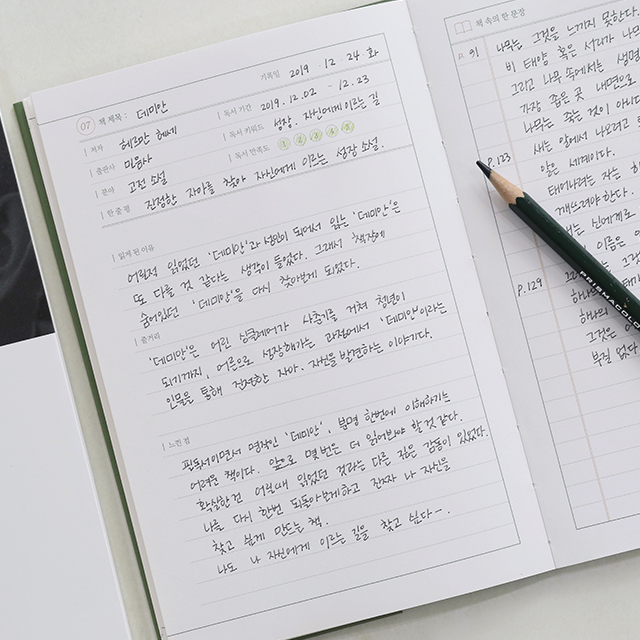 기록일 2019 . 12 . 24 화
07 책 제목 : 데미안
저자 헤르만 헤세
독서 기간 2019.12.02 ~ 12.23
출판사 민음사
독서 키워드 성장. 자신에게 이르는 길
분야 고전 소설
독서 만족도 1 2 3 4 5
한 줄 평 진정한 자아를 찾아 자신에게 이르는 성장 소설.
읽게 된 이유
어릴적 읽었던 '데미안'과 성인이 되어서 읽는 '데미안'은
또 다를 것 같다는 생각이 들었다. 그래서 책장에
숨어있던 '데미안'을 다시 찾아보게 되었다.
줄거리
'데미안'은 어린 싱클레어가 사춘기를 거쳐 청년이
되기까지, 어른으로 성장해가는 과정에서 '데미안'이라는
인물을 통해 진정한 자아, 자신을 발견하는 이야기다.
느낀 점
필독서이면서 명작인 '데미안', 분명 한번에 이해하기는
어려운 책이다. 앞으로 몇번은 더 읽어봐야 할 것 같다.
확실한건 어릴때 읽었던 것과는 다른 깊은 감동이 있었다.
나를 다시 한번 되돌아보게하고 진짜 나 자신을
찾고 싶게 만드는 책.
나도 나 자신에게 이르는 길을 찾고 싶다-.
책 속의 한 문장
p. 91 나무는 그것을 느끼지 못한다.
비 태양 혹은 서리가 나무
그리고 나무 속에서는 생명
가장 좁은 곳 내면으로
나무는 죽는 것이 아니다
p.123 새는 알에서 나오려고
알은 세계이다.
태어나려는 자는 하
깨뜨려야 한다.
새는 신에게로
이름은
p.129
하나의
하나의
그것은
부질 없다
PRISMACOLOR